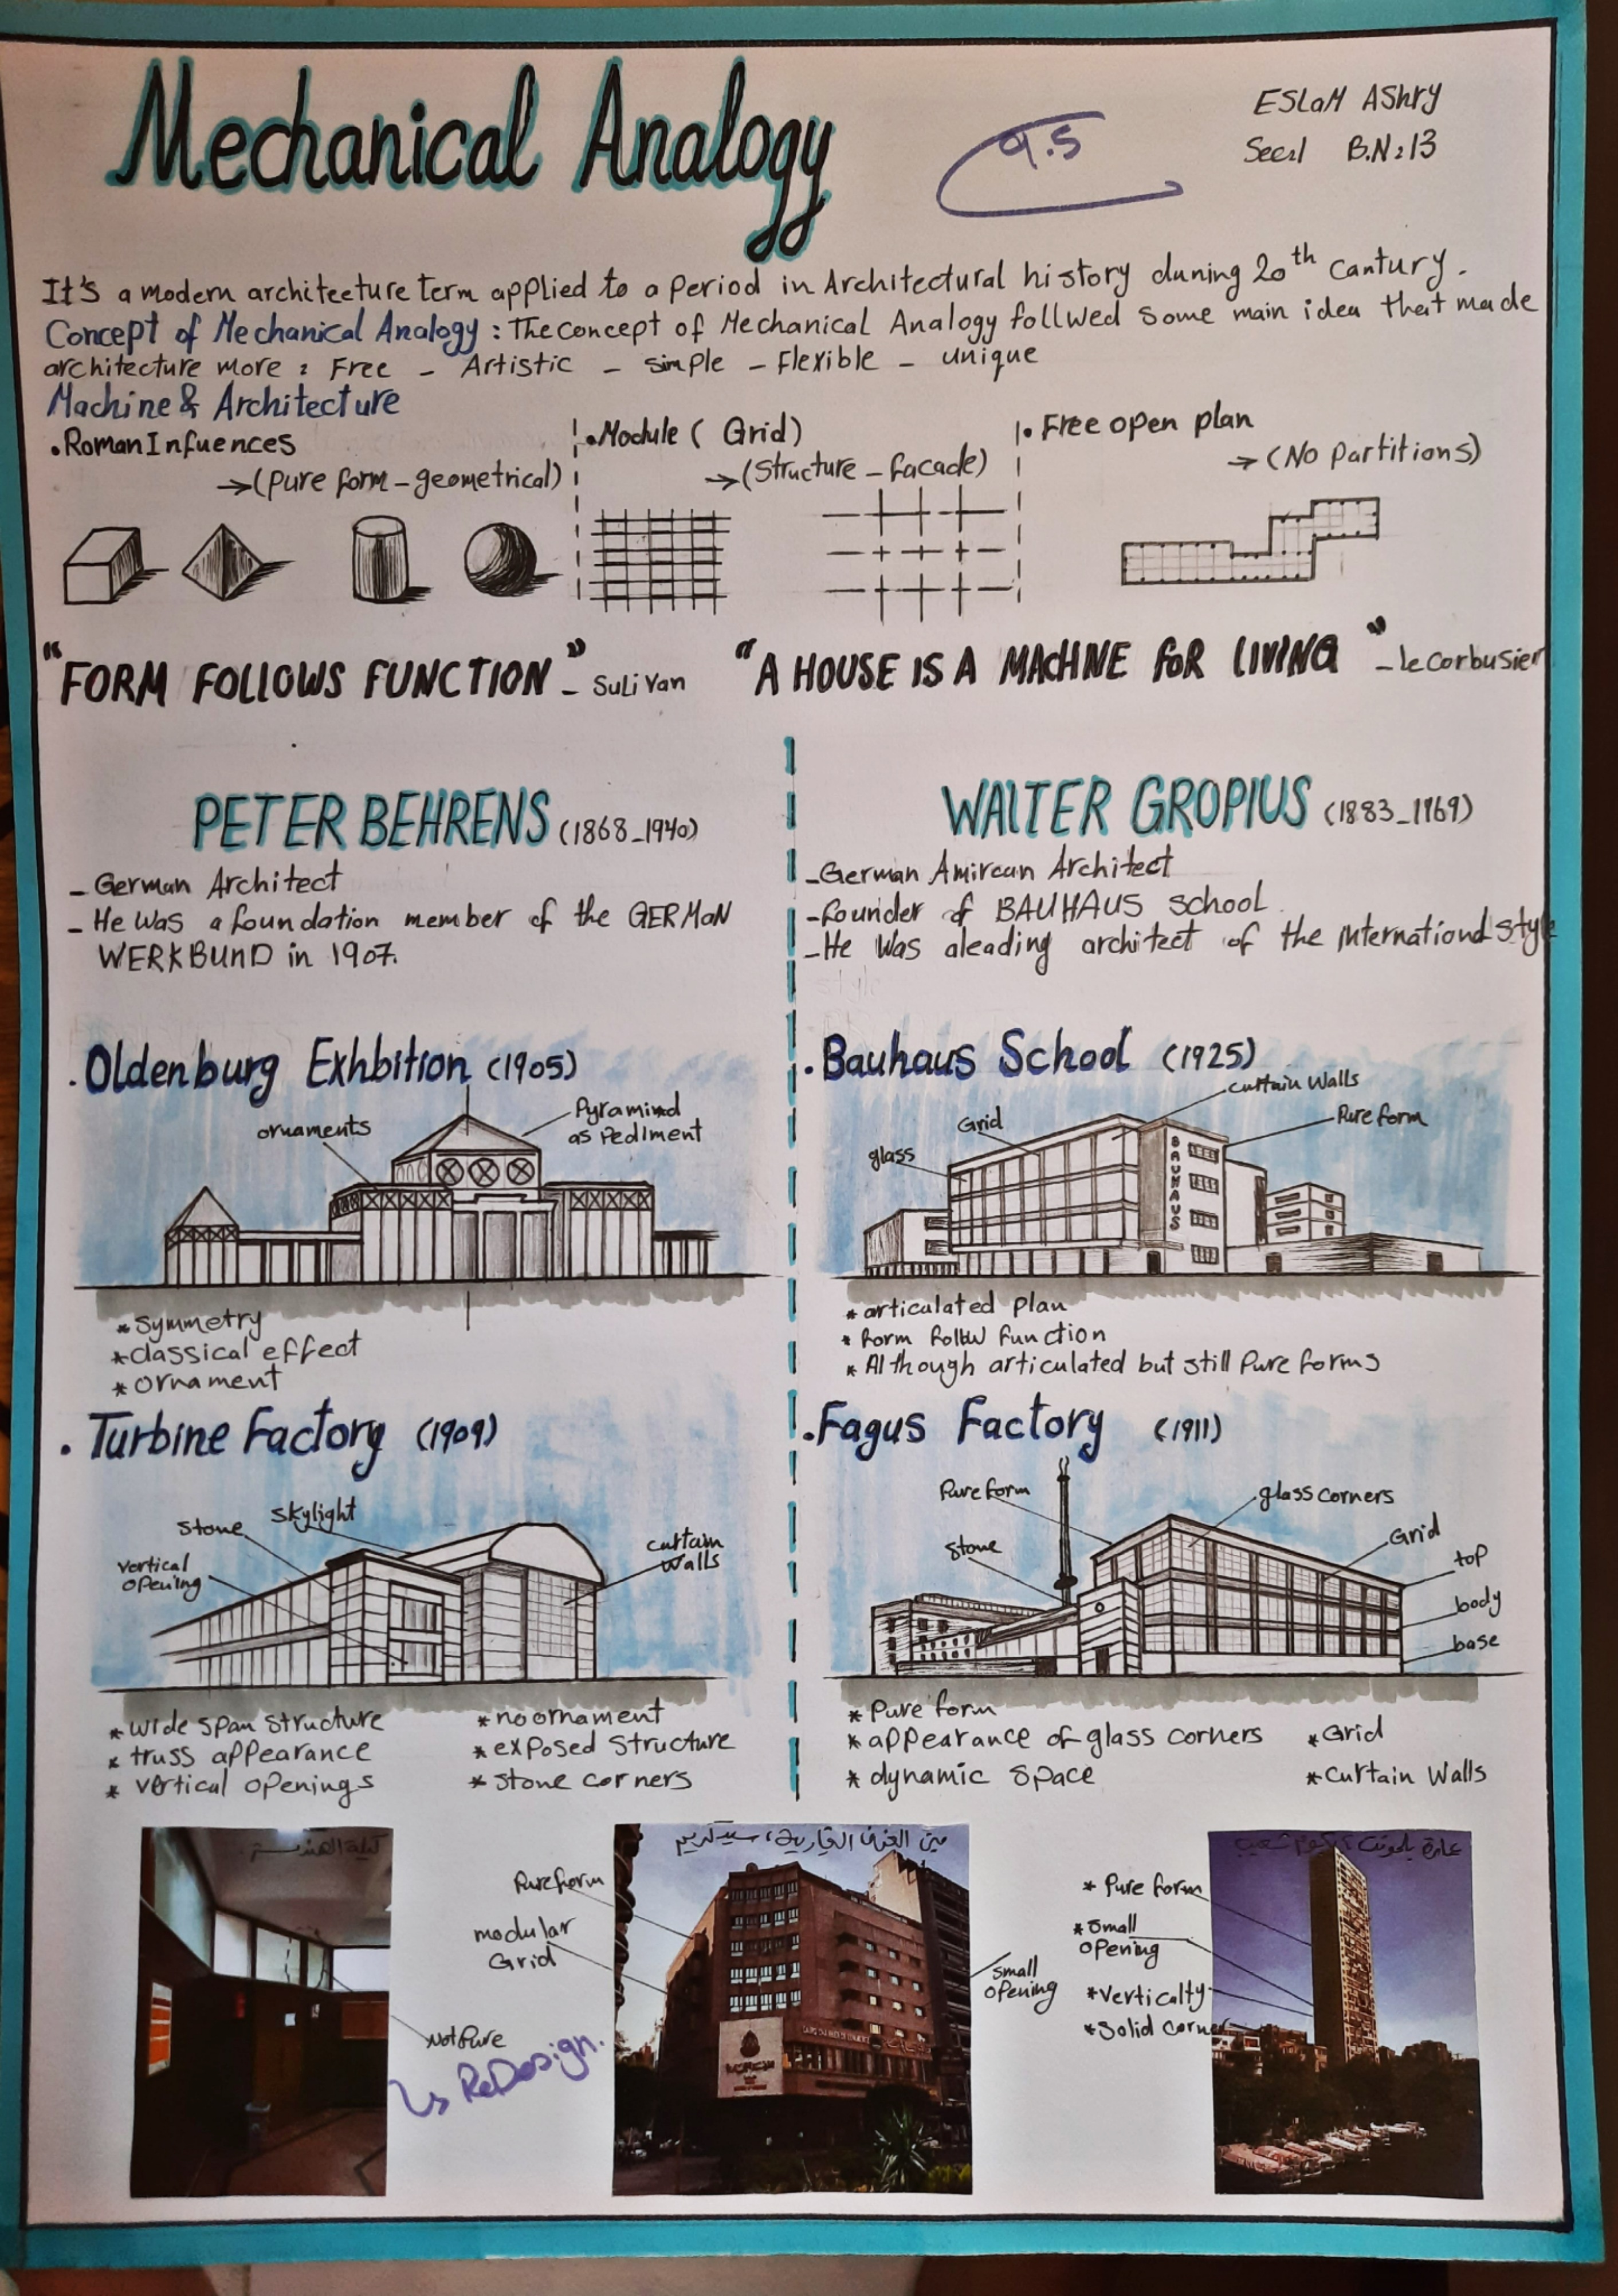 Mechanical Analogy
9.5
ESLaM AShry
Sec:1 B.N:13
It's a modern architecture term applied to a period in Architectural history duning 20th cantury.
Concept of Mechanical Analogy : The concept of Mechanical Analogy follwed some main idea that made
architecture more : Free - Artistic - simple - Flexible - unique
Machine & Architecture
• Roman Infuences
→ (Pure form - geometrical)
• Module ( Grid)
→ (Structure - facade)
• Free open plan
→ (No Partitions)
"FORM FOLLOWS FUNCTION" - SuliVan
"A HOUSE IS A MACHNE FOR LIVING" - le Corbusier
PETER BEHRENS (1868_1940)
- German Architect
- He was a foundation member of the GERMaN
WERKBUnD in 1907.
. Oldenburg Exhbition (1905)
ornaments
Pyramind
as Pediment
* Symmetry
* classical effect
* ornament
. Turbine Factory (1909)
Skylight
Stone
vertical
opening
curtain
walls
* wide span structure
* truss appearance
* vertical openings
* no ornament
* exposed structure
* stone corners
WAlTER GROPIUS (1883_1969)
- German Amircan Architect
- founder of BAUHAUS school
- He Was a leading architect of the International style
style
. Bauhaus School (1925)
curtain walls
Grid
Pure form
glass
BAUHAUS
* articulated plan
* form follow function
* Although articulated but still Pure forms
. Fagus Factory (1911)
Pure form
glass corners
Grid
Stone
top
body
base
* Pure form
* appearance of glass corners
* dynamic space
* Grid
* Curtain Walls
كلية الهندسة
Not Pure
↳ ReDesign.
Pure form
modular
Grid
small
opening
* Pure form
* Small
opening
* Verticalty
* Solid corner